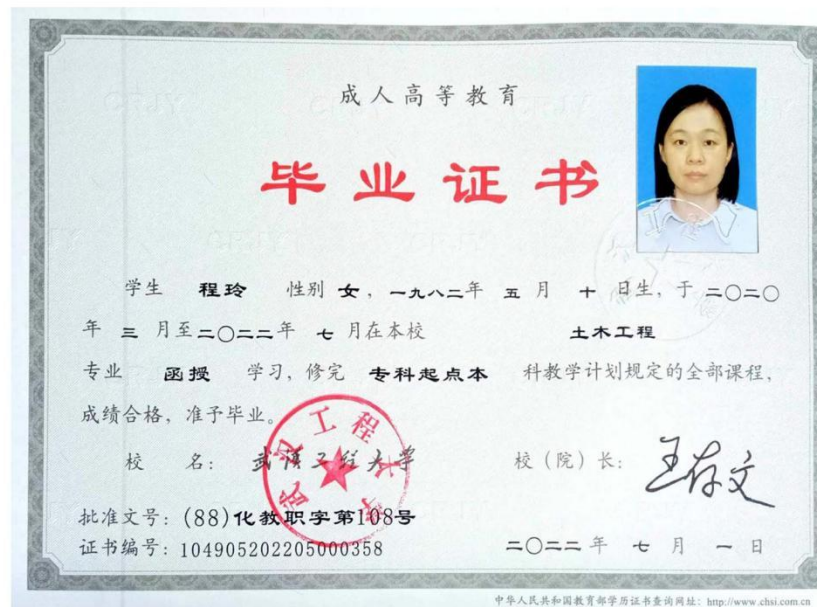 成人高等教育
毕业证书
学生 程玲 性别 女，一九八二年 五 月 十 日生，于 二〇二〇
年 三 月至二〇二二年 七 月在本校 土木工程
专业 函授 学习，修完 专科起点本 科教学计划规定的全部课程，
成绩合格，准予毕业。
校 名：武汉工程大学 校（院）长：王存文
武汉工程大学
批准文号：(88)化教职字第108号
证书编号：104905202205000358 二〇二二年 七 月 一 日
中华人民共和国教育部学历证书查询网址：http://www.chsi.com.cn